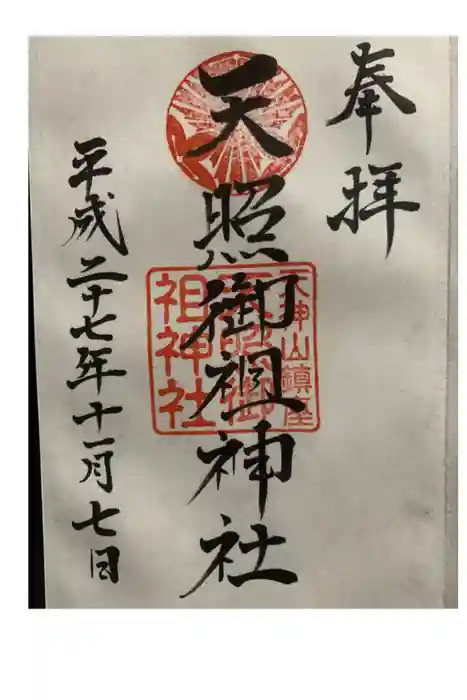 奉拝
天照御祖神社
天神山鎮座
天照御
祖神社
平成二十七年十一月七日